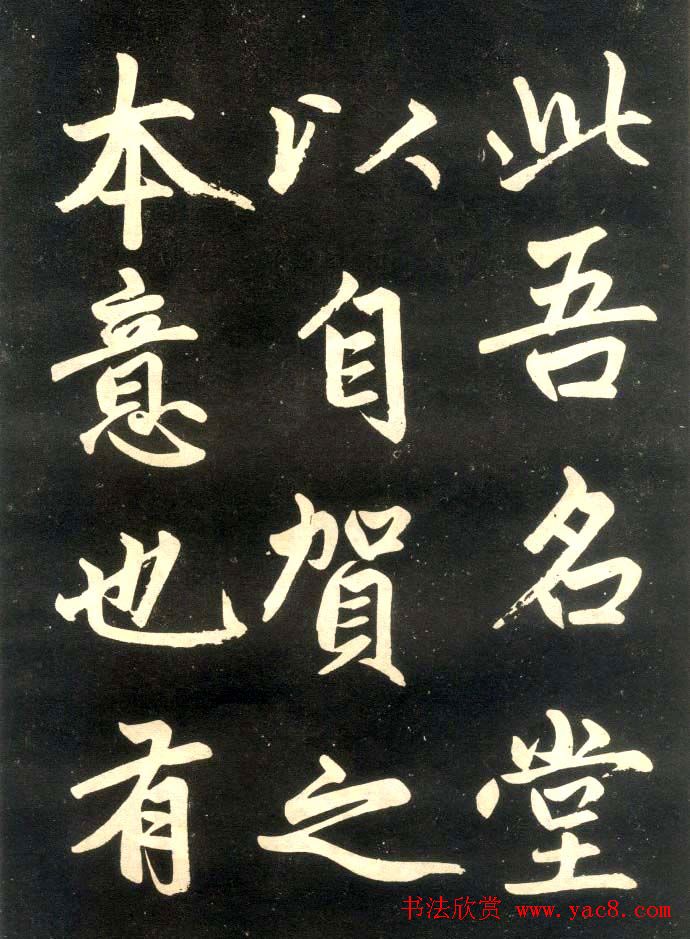 此吾名堂
以自賀之
本意也有
书法欣赏 www.yac8.com